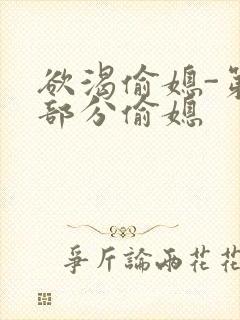 欲渴偷媳-第
部分偷媳
爭斤論兩花花